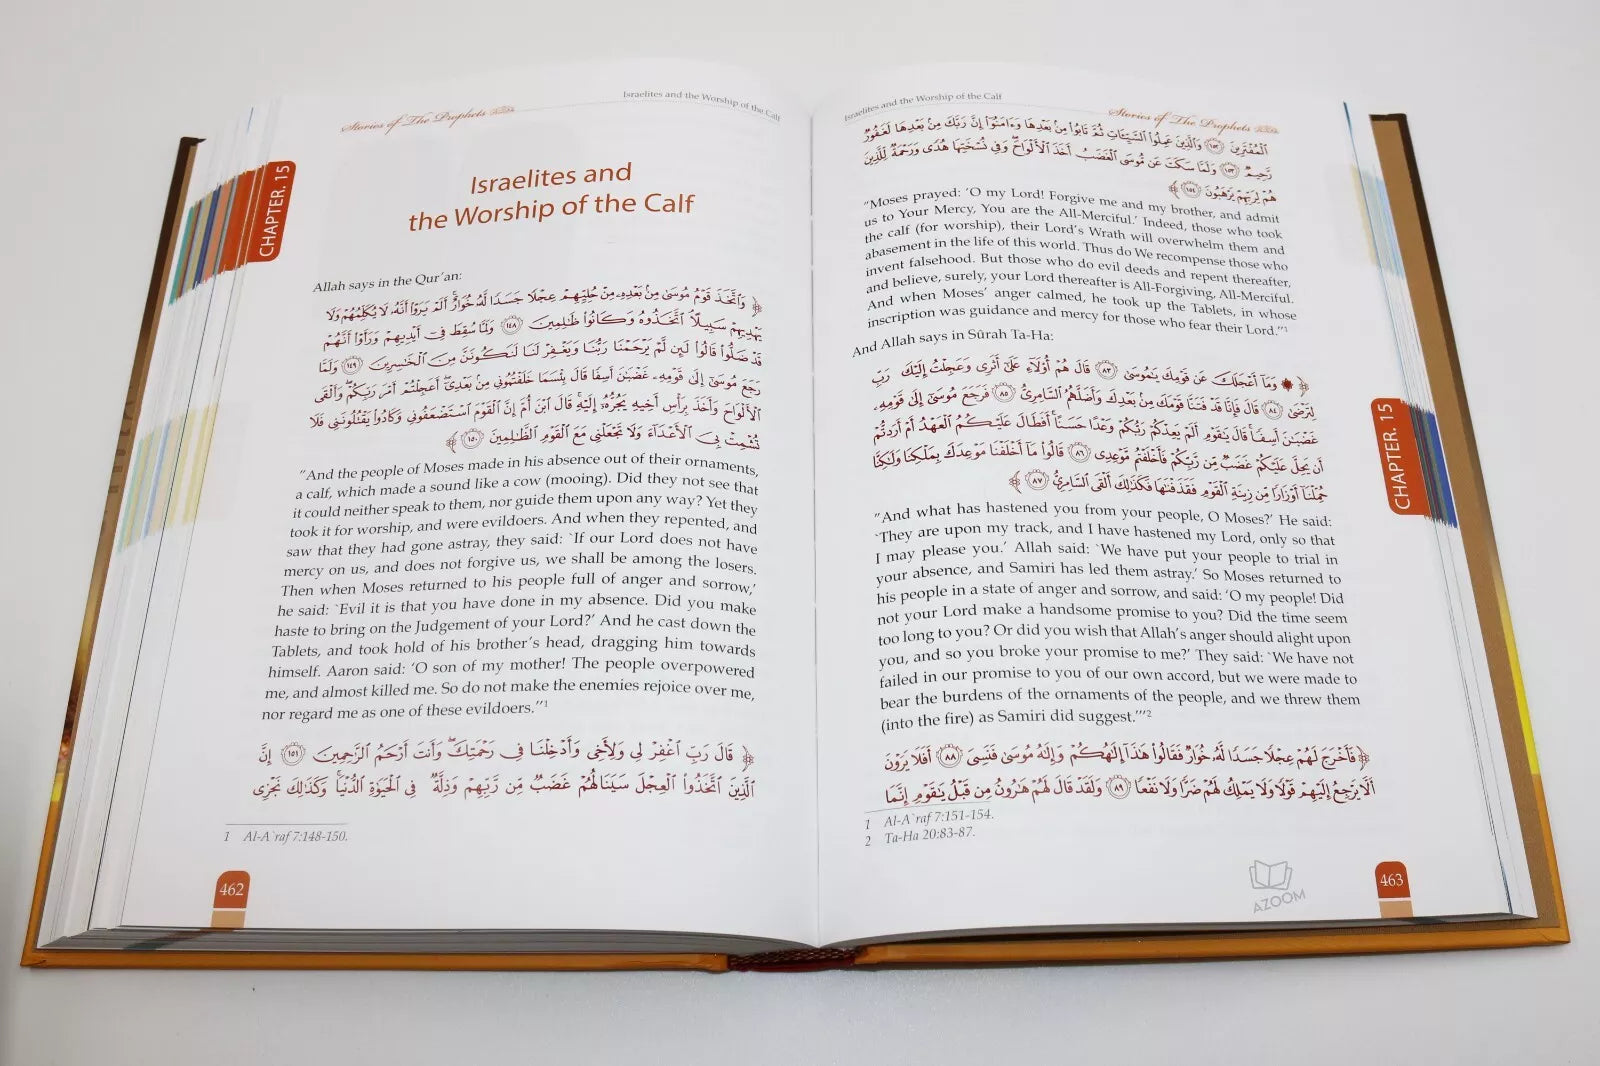 Israelites and the Worship of the Calf
Stories of The Prophets
CHAPTER. 15
Israelites and
the Worship of the Calf
Allah says in the Qur'an:
﴿ وَٱتَّخَذَ قَوْمُ مُوسَىٰ مِنۢ بَعْدِهِۦ مِنْ حُلِيِّهِمْ عِجْلًا جَسَدًا لَّهُۥ خُوَارٌ ۚ أَلَمْ يَرَوْا۟ أَنَّهُۥ لَا يُكَلِّمُهُمْ وَلَا
يَهْدِيهِمْ سَبِيلًا ۘ ٱتَّخَذُوهُ وَكَانُوا۟ ظَـٰلِمِينَ ١٤٨ وَلَمَّا سُقِطَ فِىٓ أَيْدِيهِمْ وَرَأَوْا۟ أَنَّهُمْ
قَدْ ضَلُّوا۟ قَالُوا۟ لَئِن لَّمْ يَرْحَمْنَا رَبُّنَا وَيَغْفِرْ لَنَا لَنَكُونَنَّ مِنَ ٱلْخَـٰسِرِينَ ١٤٩ وَلَمَّا
رَجَعَ مُوسَىٰٓ إِلَىٰ قَوْمِهِۦ غَضْبَـٰنَ أَسِفًا قَالَ بِئْسَمَا خَلَفْتُمُونِى مِنۢ بَعْدِىٓ ۖ أَعَجِلْتُمْ أَمْرَ رَبِّكُمْ ۖ وَأَلْقَى
ٱلْأَلْوَاحَ وَأَخَذَ بِرَأْسِ أَخِيهِ يَجُرُّهُۥٓ إِلَيْهِ ۚ قَالَ ٱبْنَ أُمَّ إِنَّ ٱلْقَوْمَ ٱسْتَضْعَفُونِى وَكَادُوا۟ يَقْتُلُونَنِى فَلَا
تُشْمِتْ بِىَ ٱلْأَعْدَآءَ وَلَا تَجْعَلْنِى مَعَ ٱلْقَوْمِ ٱلظَّـٰلِمِينَ ١٥٠ ﴾
"And the people of Moses made in his absence out of their ornaments,
a calf, which made a sound like a cow (mooing). Did they not see that
it could neither speak to them, nor guide them upon any way? Yet they
took it for worship, and were evildoers. And when they repented, and
saw that they had gone astray, they said: `If our Lord does not have
mercy on us, and does not forgive us, we shall be among the losers.
Then when Moses returned to his people full of anger and sorrow,'
he said: `Evil it is that you have done in my absence. Did you make
haste to bring on the Judgement of your Lord?' And he cast down the
Tablets, and took hold of his brother's head, dragging him towards
himself. Aaron said: 'O son of my mother! The people overpowered
me, and almost killed me. So do not make the enemies rejoice over me,
nor regard me as one of these evildoers."1
﴿ قَالَ رَبِّ ٱغْفِرْ لِى وَلِأَخِى وَأَدْخِلْنَا فِى رَحْمَتِكَ ۖ وَأَنتَ أَرْحَمُ ٱلرَّٰحِمِينَ ١٥١ إِنَّ
ٱلَّذِينَ ٱتَّخَذُوا۟ ٱلْعِجْلَ سَيَنَالُهُمْ غَضَبٌ مِّن رَّبِّهِمْ وَذِلَّةٌ فِى ٱلْحَيَوٰةِ ٱلدُّنْيَا ۚ وَكَذَٰلِكَ نَجْزِى
1 Al-A`raf 7:148-150.
462
Israelites and the Worship of the Calf
Stories of The Prophets
ٱلْمُفْتَرِينَ ١٥٢ وَٱلَّذِينَ عَمِلُوا۟ ٱلسَّيِّـَٔاتِ ثُمَّ تَابُوا۟ مِنۢ بَعْدِهَا وَءَامَنُوٓا۟ إِنَّ رَبَّكَ مِنۢ بَعْدِهَا لَغَفُورٌ
رَّحِيمٌ ١٥٣ وَلَمَّا سَكَتَ عَن مُّوسَى ٱلْغَضَبُ أَخَذَ ٱلْأَلْوَاحَ ۖ وَفِى نُسْخَتِهَا هُدًى وَرَحْمَةٌ لِّلَّذِينَ
هُمْ لِرَبِّهِمْ يَرْهَبُونَ ١٥٤ ﴾
"Moses prayed: 'O my Lord! Forgive me and my brother, and admit
us to Your Mercy, You are the All-Merciful.' Indeed, those who took
the calf (for worship), their Lord's Wrath will overwhelm them and
abasement in the life of this world. Thus do We recompense those who
invent falsehood. But those who do evil deeds and repent thereafter,
and believe, surely, your Lord thereafter is All-Forgiving, All-Merciful.
And when Moses' anger calmed, he took up the Tablets, in whose
inscription was guidance and mercy for those who fear their Lord."1
And Allah says in Sūrah Ta-Ha:
﴿ وَمَآ أَعْجَلَكَ عَن قَوْمِكَ يَـٰمُوسَىٰ ٨٣ قَالَ هُمْ أُو۟لَآءِ عَلَىٰٓ أَثَرِى وَعَجِلْتُ إِلَيْكَ رَبِّ
لِتَرْضَىٰ ٨٤ قَالَ فَإِنَّا قَدْ فَتَنَّا قَوْمَكَ مِنۢ بَعْدِكَ وَأَضَلَّهُمُ ٱلسَّامِرِىُّ ٨٥ فَرَجَعَ مُوسَىٰٓ إِلَىٰ قَوْمِهِۦ
غَضْبَـٰنَ أَسِفًا ۚ قَالَ يَـٰقَوْمِ أَلَمْ يَعِدْكُمْ رَبُّكُمْ وَعْدًا حَسَنًا ۚ أَفَطَالَ عَلَيْكُمُ ٱلْعَهْدُ أَمْ أَرَدتُّمْ
أَن يَحِلَّ عَلَيْكُمْ غَضَبٌ مِّن رَّبِّكُمْ فَأَخْلَفْتُم مَّوْعِدِى ٨٦ قَالُوا۟ مَآ أَخْلَفْنَا مَوْعِدَكَ بِمَلْكِنَا وَلَـٰكِنَّا
حُمِّلْنَآ أَوْزَارًا مِّن زِينَةِ ٱلْقَوْمِ فَقَذَفْنَـٰهَا فَكَذَٰلِكَ أَلْقَى ٱلسَّامِرِىُّ ٨٧ ﴾
"And what has hastened you from your people, O Moses?' He said:
`They are upon my track, and I have hastened my Lord, only so that
I may please you.' Allah said: `We have put your people to trial in
your absence, and Samiri has led them astray.' So Moses returned to
his people in a state of anger and sorrow, and said: 'O my people! Did
not your Lord make a handsome promise to you? Did the time seem
too long to you? Or did you wish that Allah's anger should alight upon
you, and so you broke your promise to me?' They said: `We have not
failed in our promise to you of our own accord, but we were made to
bear the burdens of the ornaments of the people, and we threw them
(into the fire) as Samiri did suggest.'"2
﴿ فَأَخْرَجَ لَهُمْ عِجْلًا جَسَدًا لَّهُۥ خُوَارٌ فَقَالُوا۟ هَـٰذَآ إِلَـٰهُكُمْ وَإِلَـٰهُ مُوسَىٰ فَنَسِىَ ٨٨ أَفَلَا يَرَوْنَ
أَلَّا يَرْجِعُ إِلَيْهِمْ قَوْلًا وَلَا يَمْلِكُ لَهُمْ ضَرًّا وَلَا نَفْعًا ٨٩ وَلَقَدْ قَالَ لَهُمْ هَـٰرُونُ مِن قَبْلُ يَـٰقَوْمِ إِنَّمَا
1 Al-A`raf 7:151-154.
2 Ta-Ha 20:83-87.
CHAPTER. 15
463
AZOOM